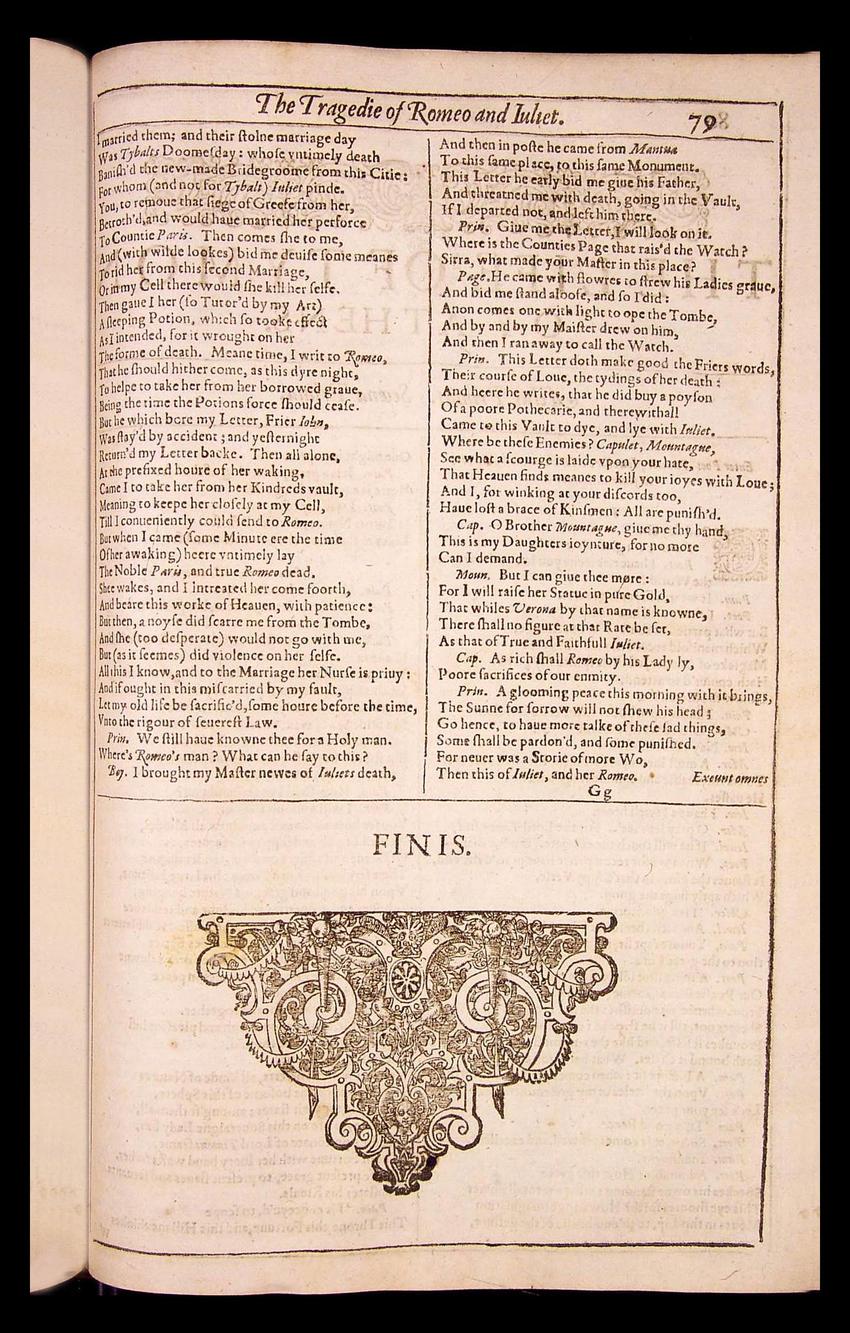 The Tragedie of Romeo and Iuliet.
79
I married them; and their ſtolne marriage day
Was Tybalts Doomeſday: whoſe vntimely death
Baniſh'd the new-made Bridegroome from this Citie:
For whom (and not for Tybalt) Iuliet pinde.
You, to remoue that ſiege of Greefe from her,
Betroth'd, and would haue married her perforce
To Countie Paris. Then comes ſhe to me,
And (with wilde lookes) bid me deuiſe ſome meanes
To rid her from this ſecond Marriage,
Or in my Cell there would ſhe kill her ſelfe.
Then gaue I her (ſo Tutor'd by my Art)
A ſleeping Potion, which ſo tooke effect
As I intended, for it wrought on her
The forme of death. Meane time, I writ to Romeo,
That he ſhould hither come, as this dyre night,
To helpe to take her from her borrowed graue,
Being the time the Potions force ſhould ceaſe.
But he which bore my Letter, Frier Iohn,
Was ſtay'd by accident; and yeſternight
Return'd my Letter backe. Then all alone,
At the prefixed houre of her waking,
Came I to take her from her Kindreds vault,
Meaning to keepe her cloſely at my Cell,
Till I conueniently could ſend to Romeo.
But when I came (ſome Minute ere the time
Of her awaking) heere vntimely lay
The Noble Paris, and true Romeo dead.
Shee wakes, and I intreated her come foorth,
And beare this worke of Heauen, with patience:
But then, a noyſe did ſcarre me from the Tombe,
And ſhe (too deſperate) would not go with me,
But (as it ſeemes) did violence on her ſelfe.
All this I know, and to the Marriage her Nurſe is priuy:
And if ought in this miſcarried by my fault,
Let my old life be ſacrific'd, ſome houre before the time,
Vnto the rigour of ſeuereſt Law.
Prin. We ſtill haue knowne thee for a Holy man.
Where's Romeo's man? What can he ſay to this?
Boy. I brought my Maſter newes of Iuliets death,
And then in poſte he came from Mantua
To this ſame place, to this ſame Monument.
This Letter he early bid me giue his Father,
And threatned me with death, going in the Vault,
If I departed not, and left him there.
Prin. Giue me the Letter, I will look on it.
Where is the Counties Page that rais'd the Watch?
Sirra, what made your Maſter in this place?
Page. He came with flowres to ſtrew his Ladies graue,
And bid me ſtand aloofe, and ſo I did:
Anon comes one with light to ope the Tombe,
And by and by my Maiſter drew on him,
And then I ran away to call the Watch.
Prin. This Letter doth make good the Friers words,
Their courſe of Loue, the tydings of her death:
And heere he writes, that he did buy a poyſon
Of a poore Pothecarie, and therewithall
Came to this Vault to dye, and lye with Iuliet.
Where be theſe Enemies? Capulet, Mountague,
See what a ſcourge is laide vpon your hate,
That Heauen finds meanes to kill your ioyes with Loue;
And I, for winking at your diſcords too,
Haue loſt a brace of Kinſmen: All are puniſh'd.
Cap. O Brother Mountague, giue me thy hand,
This is my Daughters ioynture, for no more
Can I demand.
Moun. But I can giue thee more:
For I will raiſe her Statue in pure Gold,
That whiles Verona by that name is knowne,
There ſhall no figure at that Rate be ſet,
As that of True and Faithfull Iuliet.
Cap. As rich ſhall Romeo by his Lady ly,
Poore ſacrifices of our enmity.
Prin. A glooming peace this morning with it brings,
The Sunne for ſorrow will not ſhew his head;
Go hence, to haue more talke of theſe ſad things,
Some ſhall be pardon'd, and ſome puniſhed.
For neuer was a Storie of more Wo,
Then this of Iuliet, and her Romeo. Exeunt omnes
Gg
FINIS.